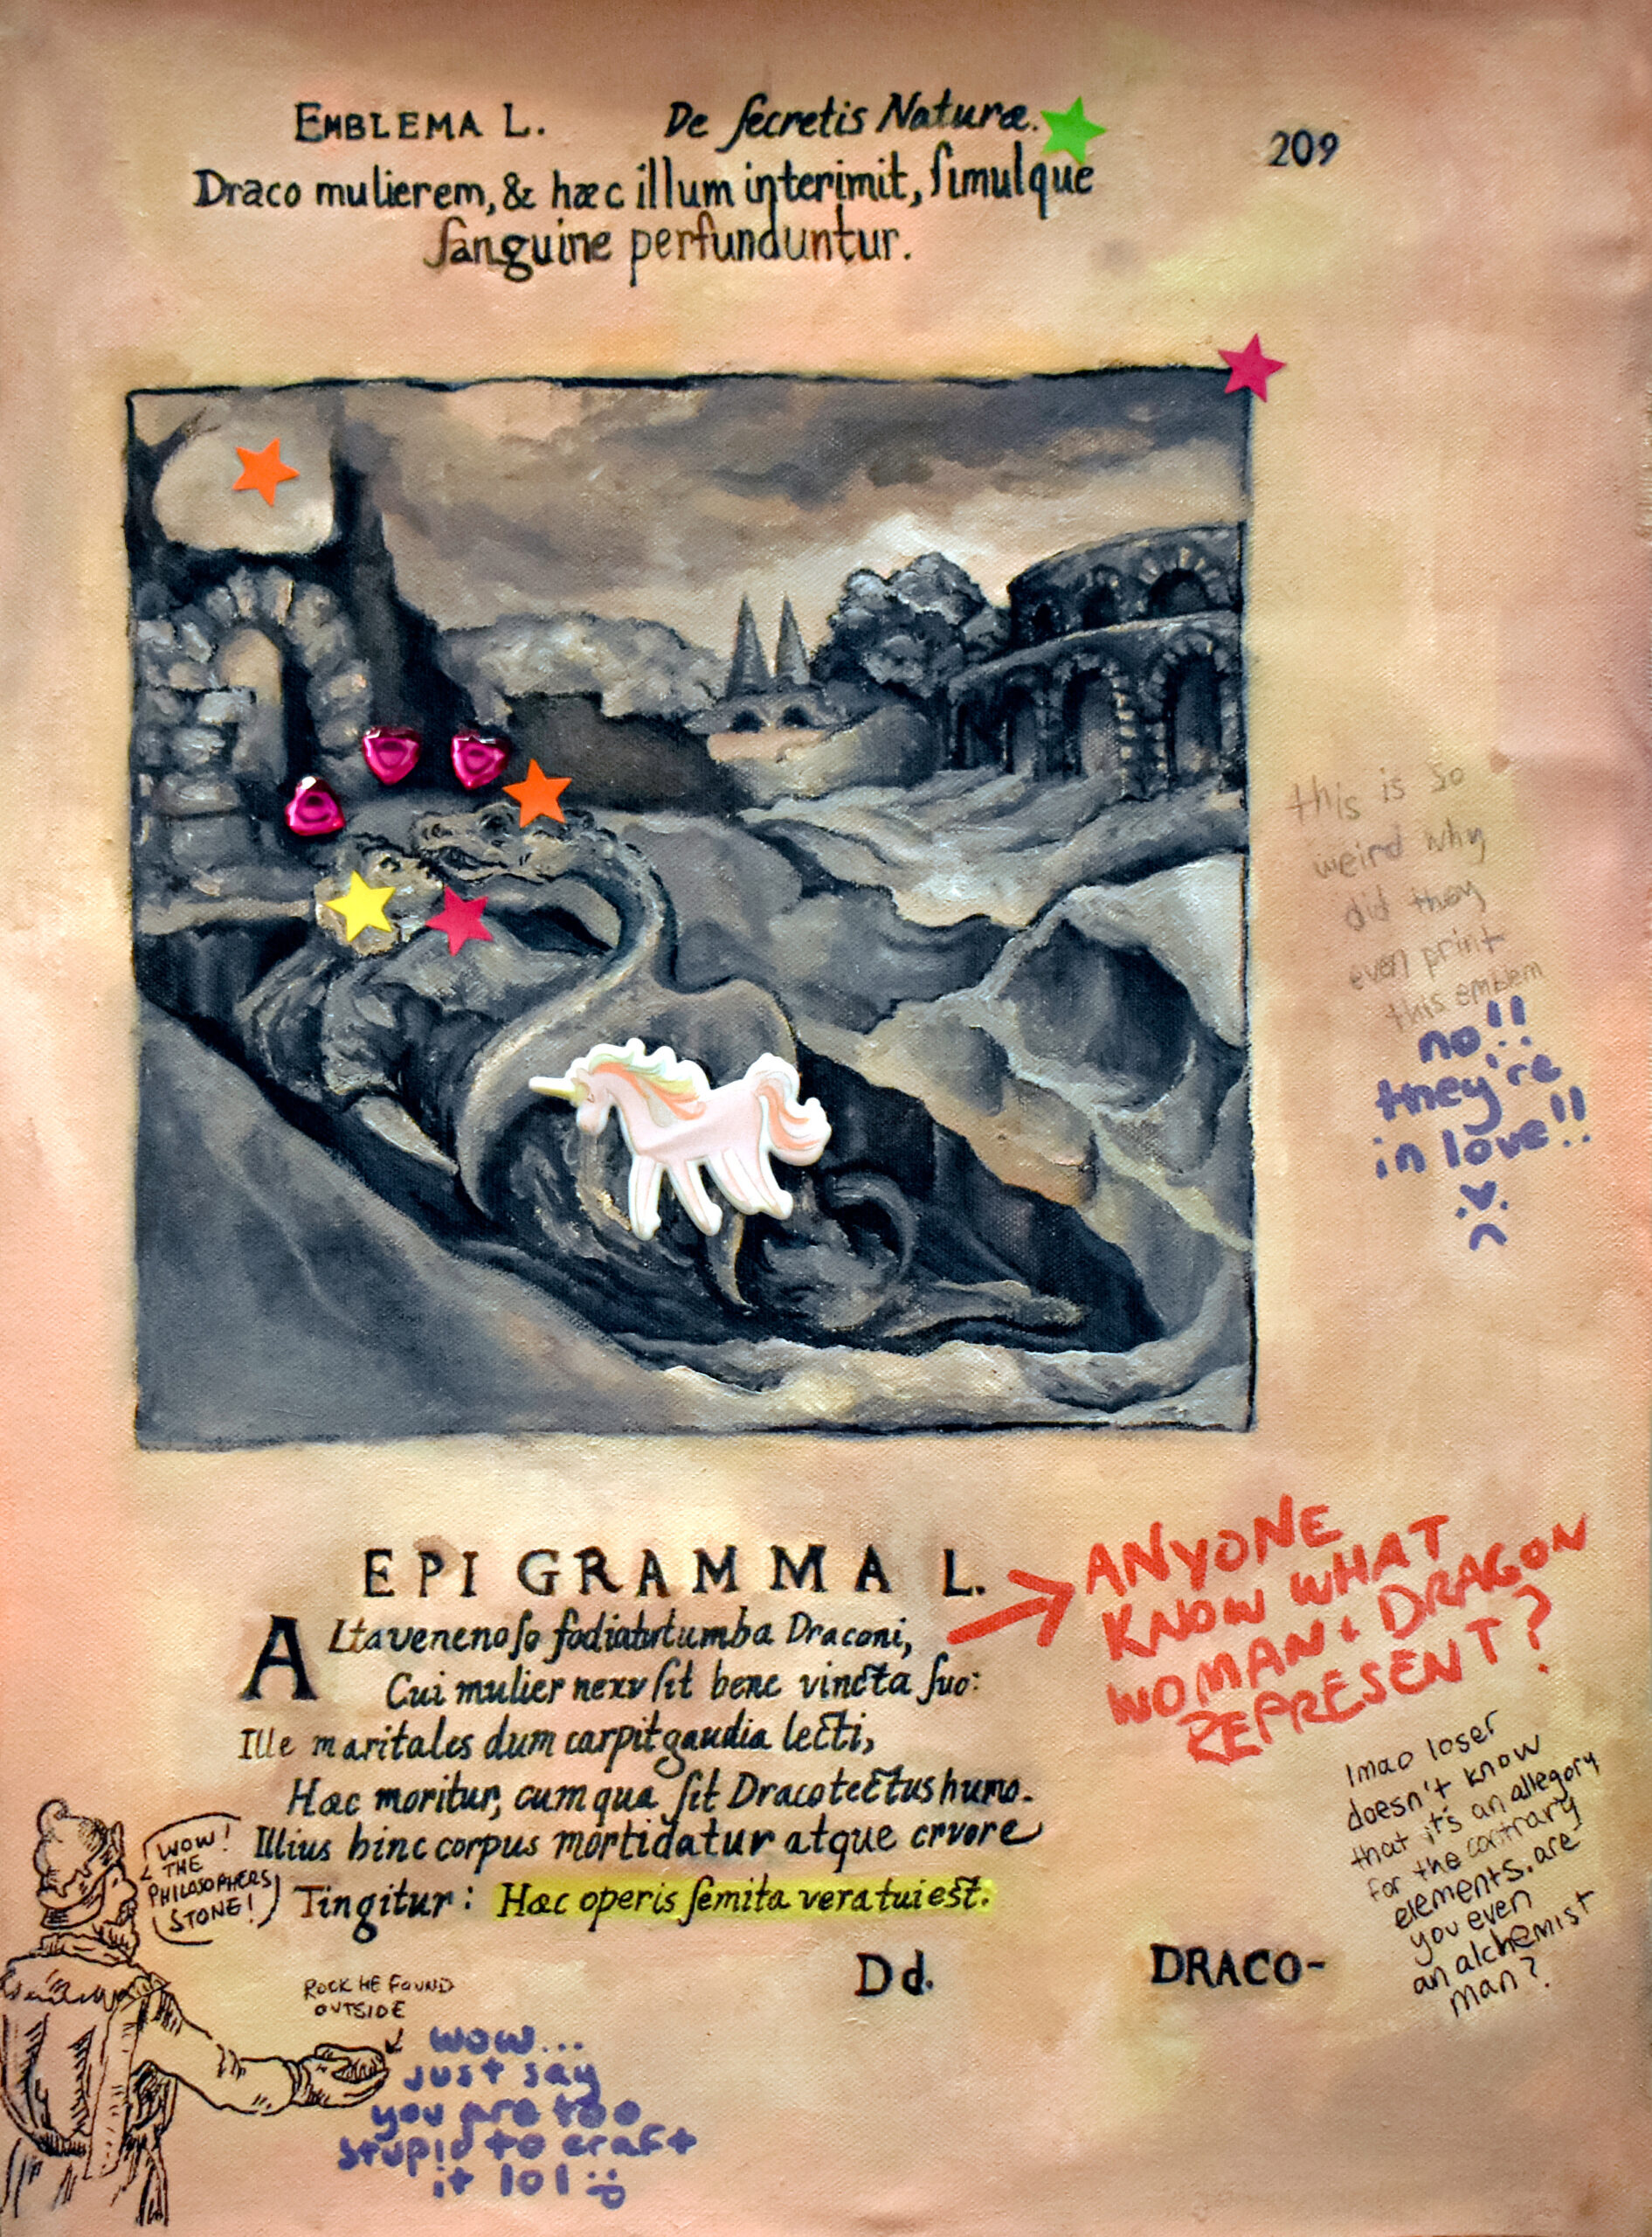 EMBLEMA L. De ſecretis Naturæ. 209
Draco mulierem, & hæc illum interimit, ſimulque
ſanguine perfunduntur.
this is so
weird why
did they
even print
this emblem
no!!
they're
in love!!
EPIGRAMMA L.
ALta venenoſo fodiatur tumba Draconi,
Cui mulier nexu ſit bene vincta ſuo:
Ille maritales dum carpit gaudia lecti,
Hæc moritur, cum qua ſit Draco tectus humo.
Illius hinc corpus morti datur atque crvore
Tingitur: Hæc operis ſemita vera tui est.
Dd. DRACO-
ANYONE
KNOW WHAT
WOMAN + DRAGON
REPRESENT?
lmao loser
doesn't know
that it's an allegory
for the contrary
elements. are
you even
an alchemist
man?
WOW!
THE
PHILASOPHERS
STONE!
ROCK HE FOUND
OUTSIDE
wow...
just say
you are too
stupid to craft
it lol :P